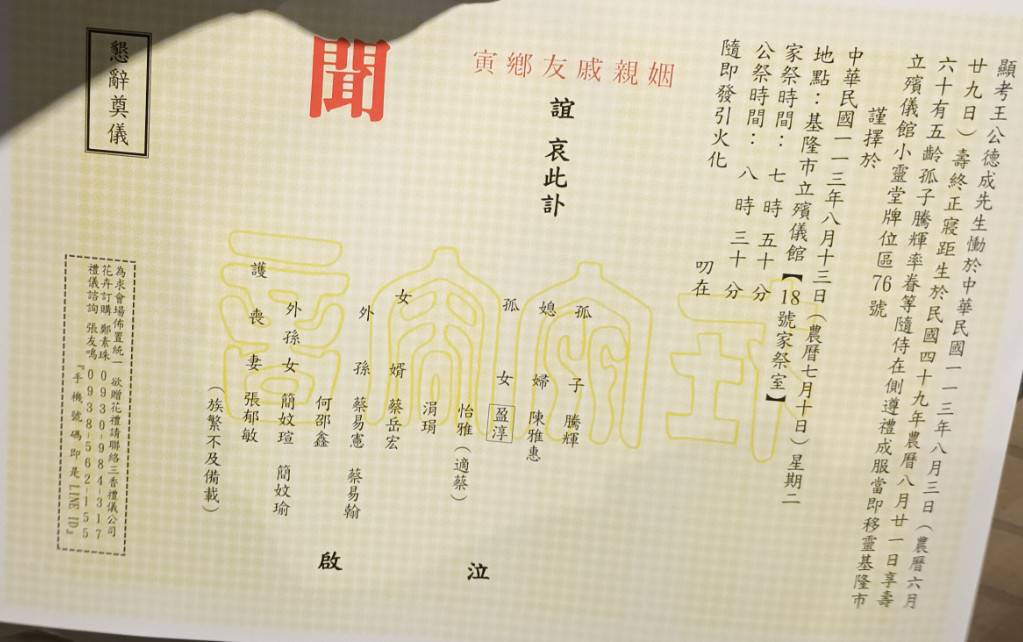 顯考王公德成先生慟於中華民國一一三年八月三日（農曆六月
廿九日）壽終正寢距生於民國四十九年農曆八月廿一日享壽
六十有五齡孤子騰輝率眷等隨侍在側遵禮成服當即移靈基隆市
立殯儀館小靈堂牌位區76號
謹擇於
中華民國一一三年八月十三日（農曆七月十日）星期二
地點：基隆市立殯儀館【18號家祭室】
家祭時間：七時五十分
公祭時間：八時三十分
隨即發引火化
叨在
姻親戚友鄉寅
誼 哀此訃
聞
孤子 騰輝
媳婦 陳雅惠
孤女 盈淳
怡雅（適蔡）
涓琄
女婿 蔡岳宏
外孫 蔡易憲 蔡易翰
何邵鑫
外孫女 簡妏瑄 簡妏瑜
護喪妻 張郁敏
（族繁不及備載）
泣
啟
懇辭奠儀
為求會場佈置統一 欲贈花禮請聯絡三香禮儀公司
花卉訂購 鄭素珠 0930-984-317
禮儀諮詢 張友鳴 0938-562-155
『手機號碼即是LINE ID』